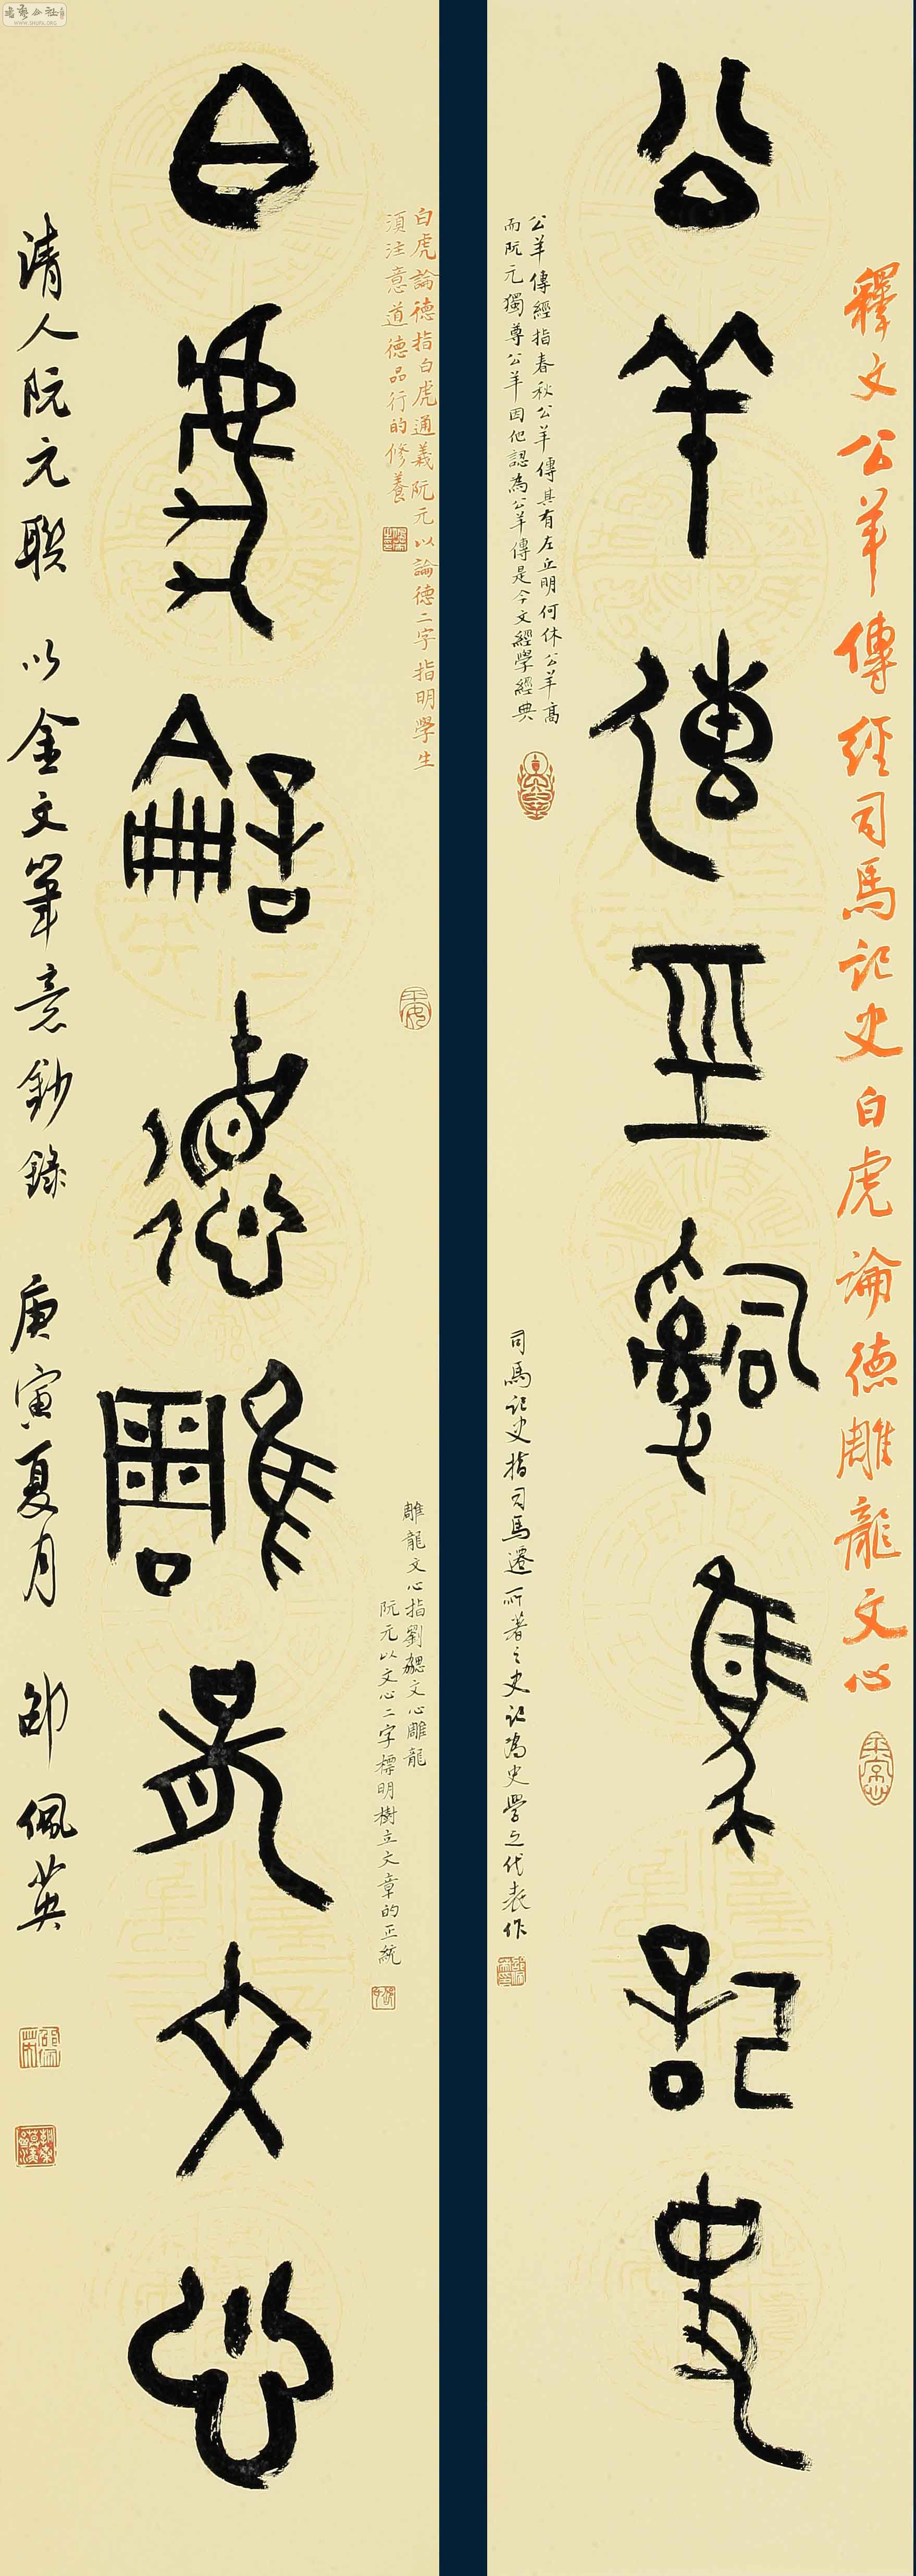 釋文公羊傳經司馬記史白虎論德雕龍文心
公羊傳經司馬記史
公羊傳經指春秋公羊傳其有左丘明何休公羊高
而阮元獨尊公羊因他認為公羊傳是今文經學經典
司馬記史指司馬遷所著之史記為史學之代表作
白虎論德雕龍文心
白虎論德指白虎通義阮元以論德二字指明學生
須注意道德品行的修養
雕龍文心指劉勰文心雕龍
阮元以文心二字標明樹立文章的正統
清人阮元聯 以金文筆意鈔錄 庚寅夏月 邵佩英
WWW.SHUFA.ORG